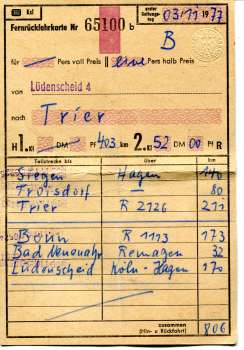 DB Ksl
Fernrückfahrkarte Nr 65100 b
erster Geltungstag 03/11 1977
B
für Pers voll Preis eine Pers halb Preis
von
Lüdenscheid 4
nach
Trier
H 1. Kl DM Pf 403 km 2. Kl 52 DM 00 Pf R
Teilstrecke bis über km
Siegen Hagen 110
Troisdorf 80
Trier R 2126 211
Bonn R 1113 173
Bad Neuenahr Remagen 32
Lüdenscheid Köln-Hagen 170
zusammen
(Hin- u Rückfahrt) 806